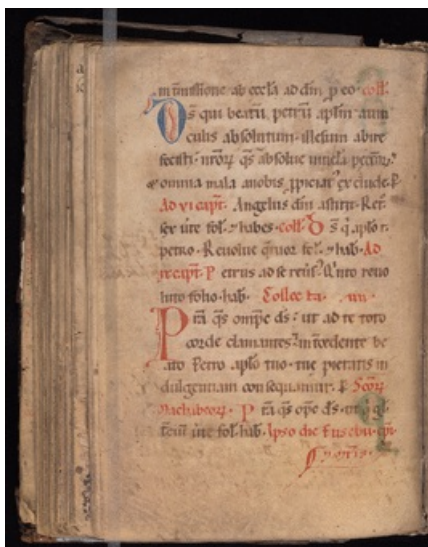 intmissione ab eccl̄a ad dm̄ p̄ eo· coll̄.
Ds̄ qui beatū petrū apl̄m auin
culis absolutum· illesum abire
fecisti· nr̄oꝝ qs̄ absolue uincla peccoꝝ·
⁊ omnia mala anobis ꝓpiciat' exclude· ꝑ
Ad vi capit̄· Angelus dn̄i astitit· Ret̄
fol̄· ⁊ habes· coll̄· Ds̄ q̇ apl̄o t·
petro· Reuolue fol̄· ⁊ hab̄· Ad
capit̄· Petrus ad se reūs· reuo
luto folio· hab̄· Collecta·
Prā qs̄ omp̄e ds̄· ut ad te toto
corde clamantes· intcedente be
ato Petro apl̄o tuo· tue pietatis in
dulgentiam consequamur· ꝑ Sc̄oꝝ
Machabeoꝝ· Prā qs̄ op̄e ds̄·
fol̄· hab̄· Ipso die Eusebii· ep̄i·